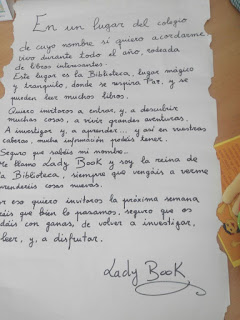 En un lugar del colegio
de cuyo nombre si quiero acordarme,
vivo durante todo el año, rodeada
de libros interesantes.
Este lugar es la Biblioteca, lugar mágico
y tranquilo, donde se respira Paz, y se
pueden leer muchos libros.
Quiero invitaros a entrar, y, a descubrir
muchas cosas, a vivir grandes aventuras.
A investigar y, a aprender... y así en vuestras
cabezas, mucha información podéis tener.
Seguro que sabéis mi nombre.
Me llamo Lady Book y soy la reina de
la Biblioteca, siempre que vengáis a verme
aprenderéis cosas nuevas.
or eso quiero invitaros la próxima semana
réis que bien lo pasamos, seguro que os
dáis con ganas, de volver a investigar,
leer, y, a disfrutar.
Lady Book